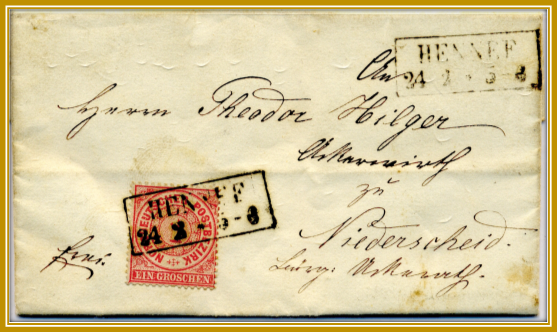 HENNEF
24 2 5-6
An
Herrn Theodor Hilger
Ackerwirth
zu
Niederscheid.
Bürg: Uckerath.
frei.
HENNEF
24 2 5-6
NORDDEUTSCHER POSTBEZIRK
EIN GROSCHEN